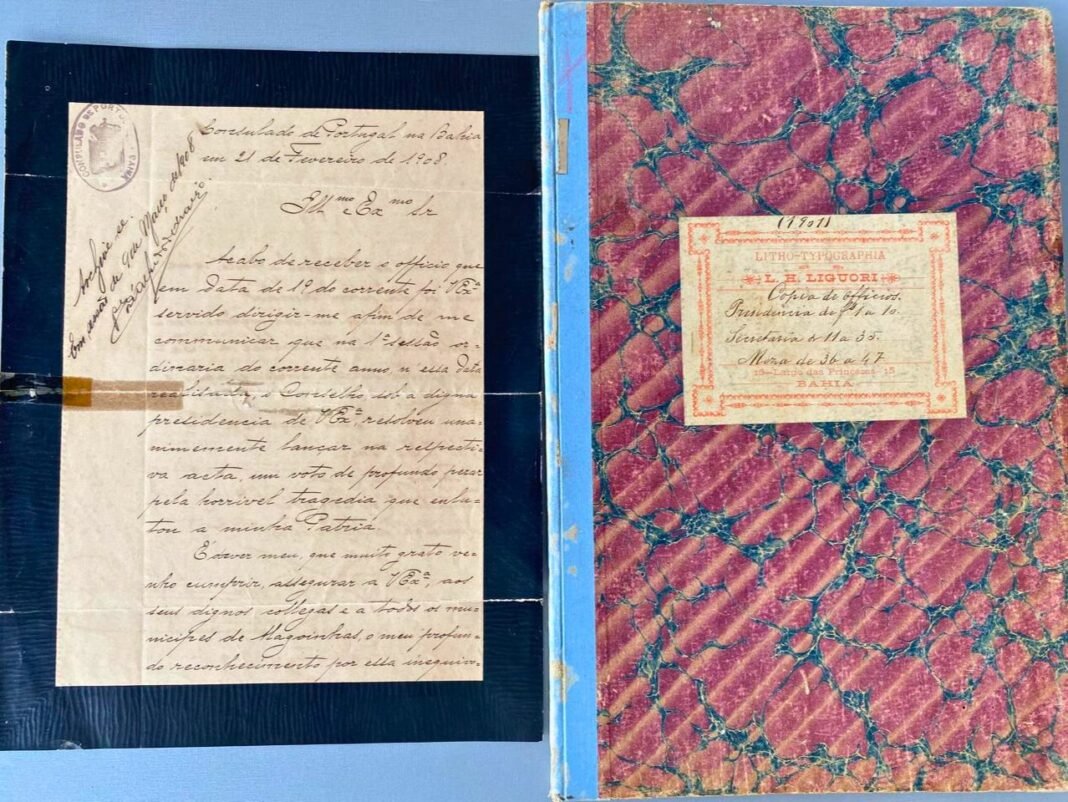 CONSULADO DE PORTUGAL BAHIA
Consulado de Portugal na Bahia
em 21 de Fevereiro de 1908.
Archive-se.
Em sessão de 9 de Março de 1908
Illmo e Exmo Sr
Acabo de receber o officio que
em data de 1º do corrente foi VExª
servido dirigir-me afim de me
communicar que na 1ª sessão or-
dinaria do corrente anno, n'essa data
realisada, o Conselho, sob a digna
presidencia de VExª, resolveu una-
nimemente lançar na respecti-
va acta, um voto de profundo pesar
pela horrivel tragedia que enlu-
tou a minha Patria.
É dever meu, que muito grato ve-
nho cumprir, assegurar a VExª, aos
seus dignos collegas e a todos os mu-
nicipes de Alagoinhas, o meu profun-
do reconhecimento por essa inequivo-
(1901)
LITHO-TYPOGRAPHIA
L. H. LIGUORI
Copia de officios.
Presidencia de fs 1 a 10.
Secretaria de 11 a 35.
Meza de 36 a 47
15-Largo das Princezas 15
BAHIA